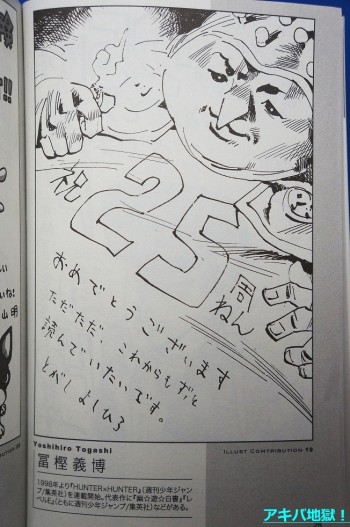 祝
25
周
ねん
おめでとうございます
ただただ、これからもずっと
読んでいたいです。
とがしよしひろ
Yoshihiro Togashi
ILLUST CONTRIBUTION 19
冨樫義博
1998年より『HUNTER×HUNTER』(週刊少年ジャン
プ/集英社)を連載開始。代表作に『幽☆遊☆白書』『レ
ベルE』(ともに週刊少年ジャンプ/集英社)などがある。
山明
アキバ地獄!